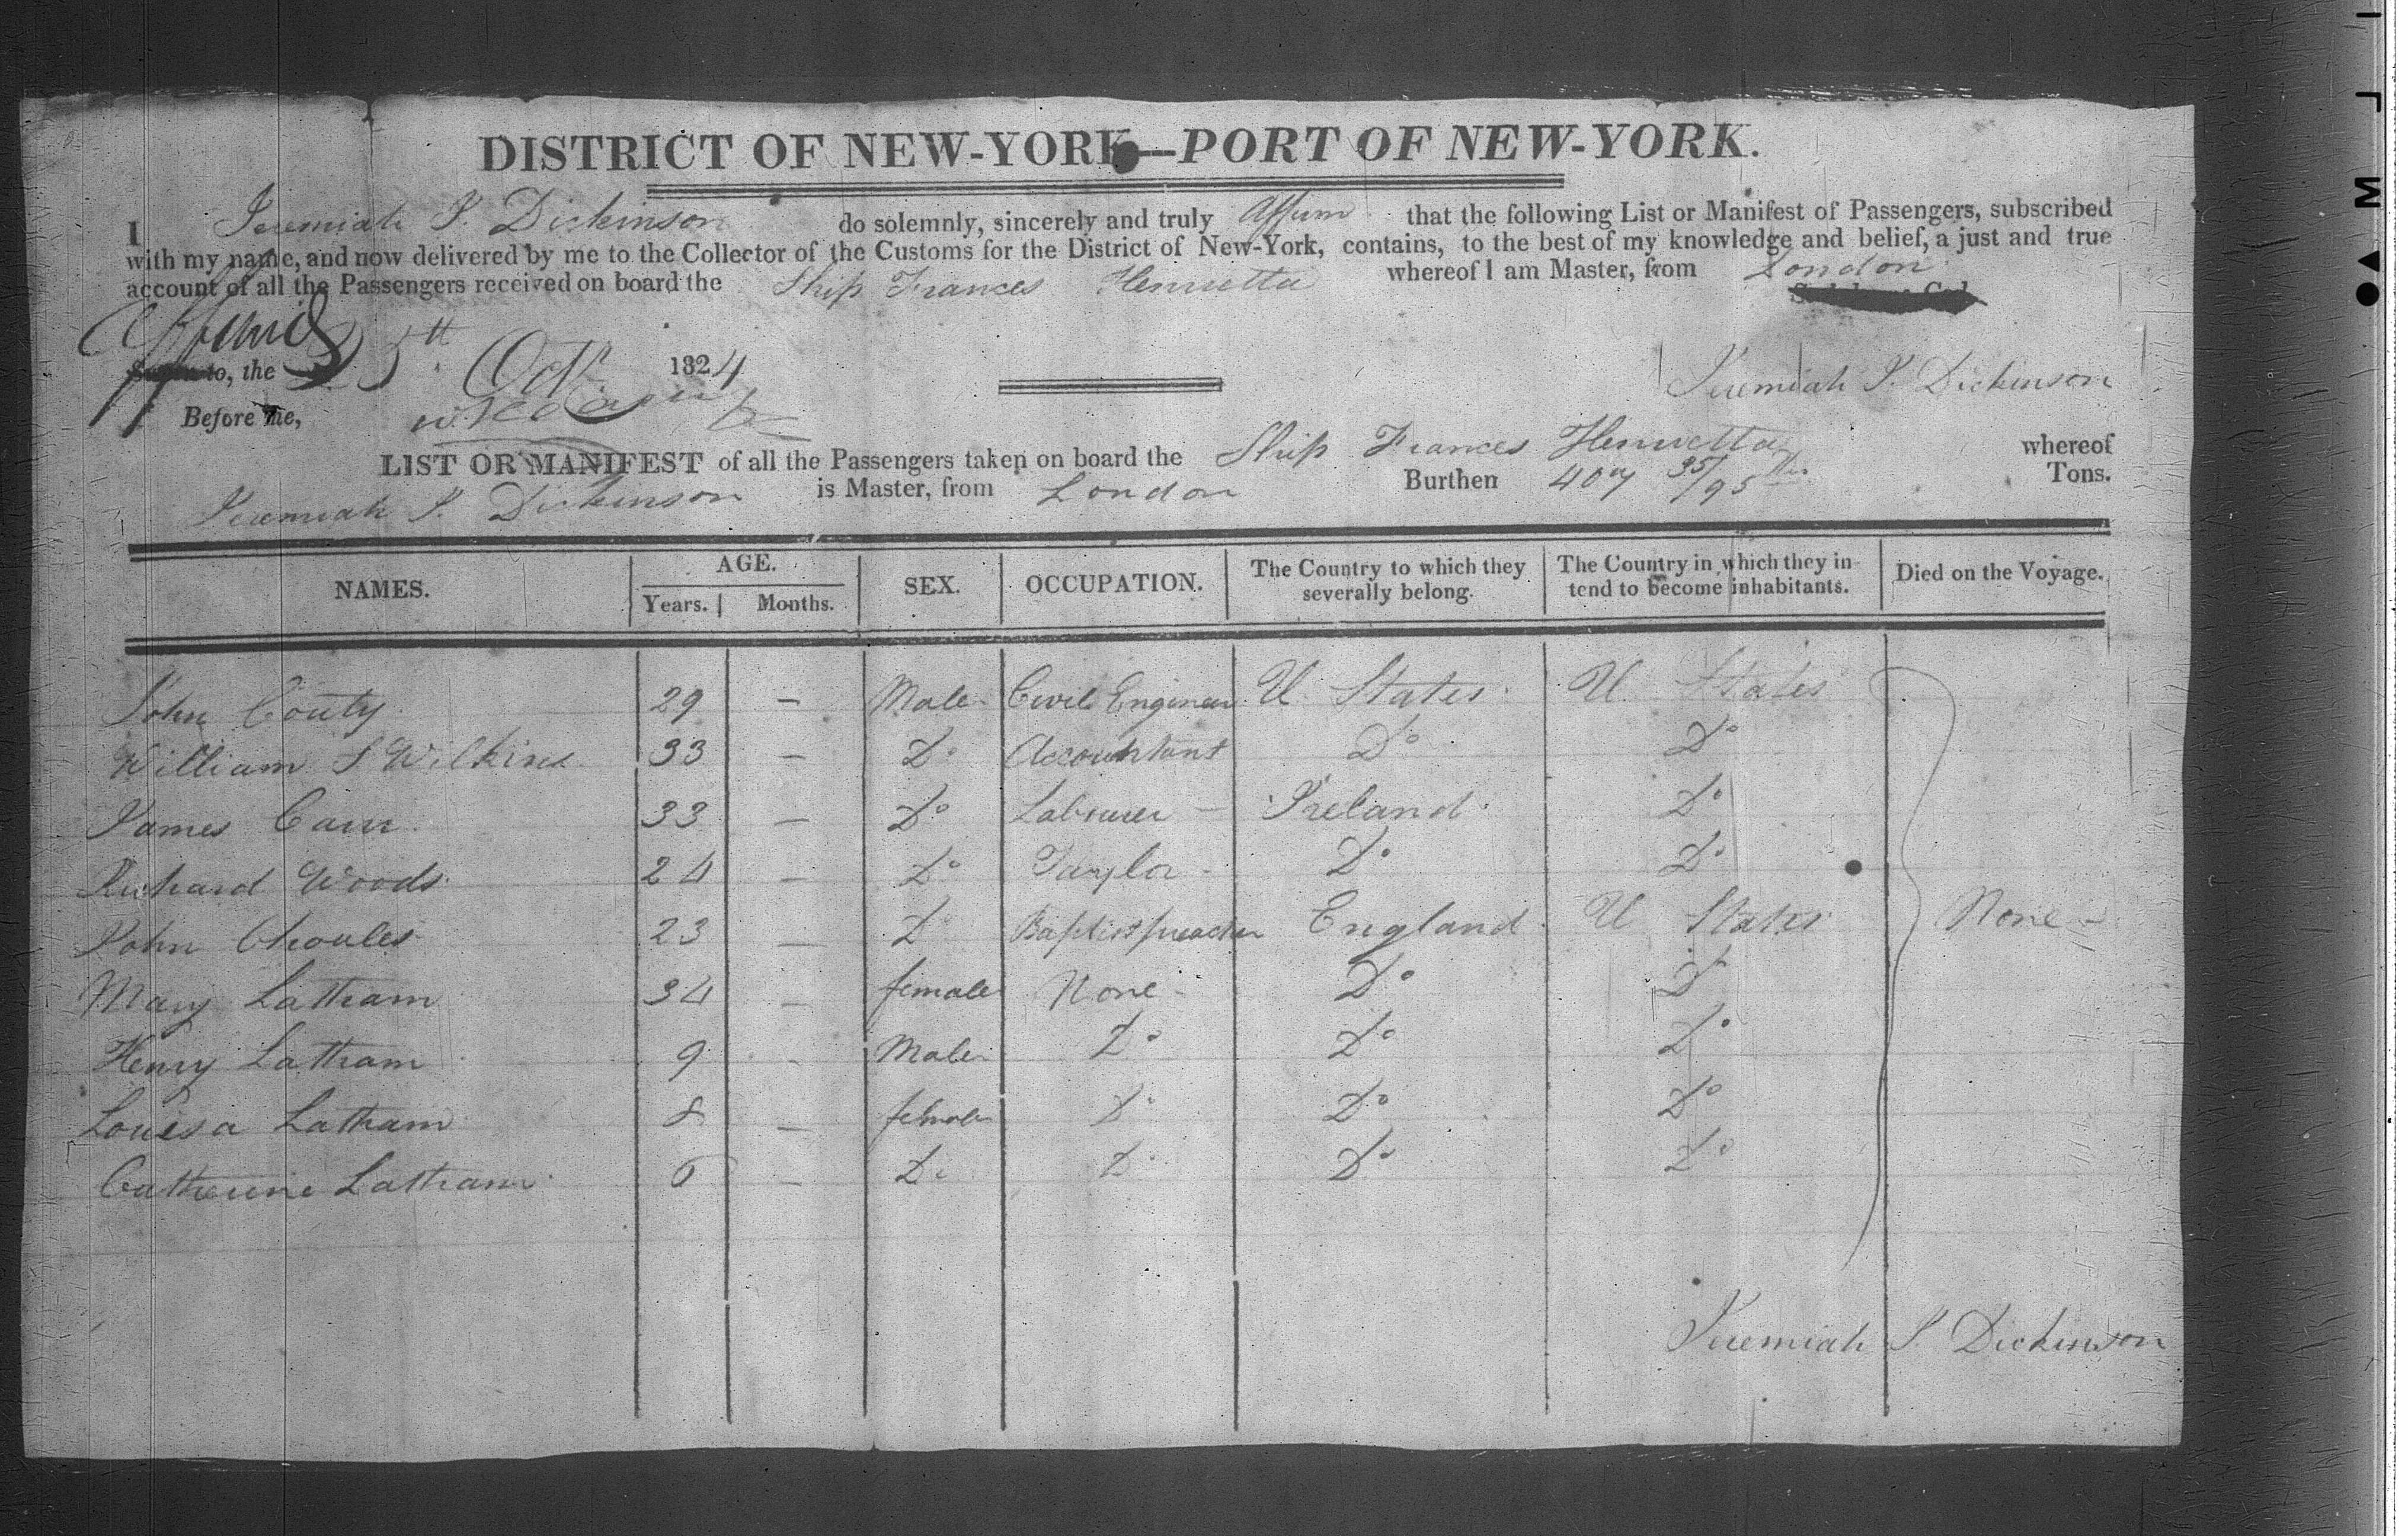 DISTRICT OF NEW-YORK—PORT OF NEW-YORK.
I Jeremiah J. Dickinson do solemnly, sincerely and truly Affirm that the following List or Manifest of Passengers, subscribed
with my name, and now delivered by me to the Collector of the Customs for the District of New-York, contains, to the best of my knowledge and belief, a just and true
account of all the Passengers received on board the Ship Frances Henrietta whereof I am Master, from London
Affirmed
to, the 5th Octr 1824
Jeremiah J. Dickinson
Before me,
LIST OR MANIFEST of all the Passengers taken on board the Ship Frances Henrietta whereof
Jeremiah J. Dickinson is Master, from London Burthen 407 35/95ths Tons.
NAMES. AGE. Years. Months. SEX. OCCUPATION. The Country to which they severally belong. The Country in which they intend to become inhabitants. Died on the Voyage.
John Couty 29 — Male Civil Engineer U States U States
William S Wilkins 33 — Do Accountant Do Do
James Carr 33 — Do Labourer — Ireland Do
Richard Woods 24 — Do Taylor - Do Do
John Choules 23 — Do Baptist preacher England U States None -
Mary Latham 34 — female None - Do Do
Henry Latham 9 - Male Do Do Do
Louisa Latham 8 — female Do Do Do
Catherine Latham 6 — Do Do Do Do
Jeremiah J. Dickinson